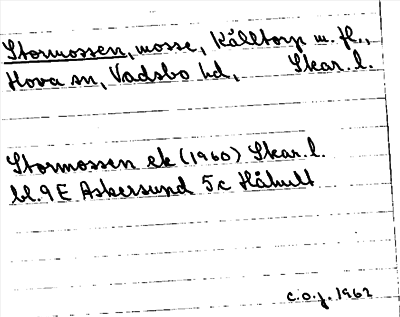 Stormossen, mosse, Källtorp m. fl.,
Hova sn, Vadsbo hd, Skar. l.
Stormossen ek (1960) Skar. l.
bl. 9 E Askersund 5 c Håhult
C.O.J. 1962